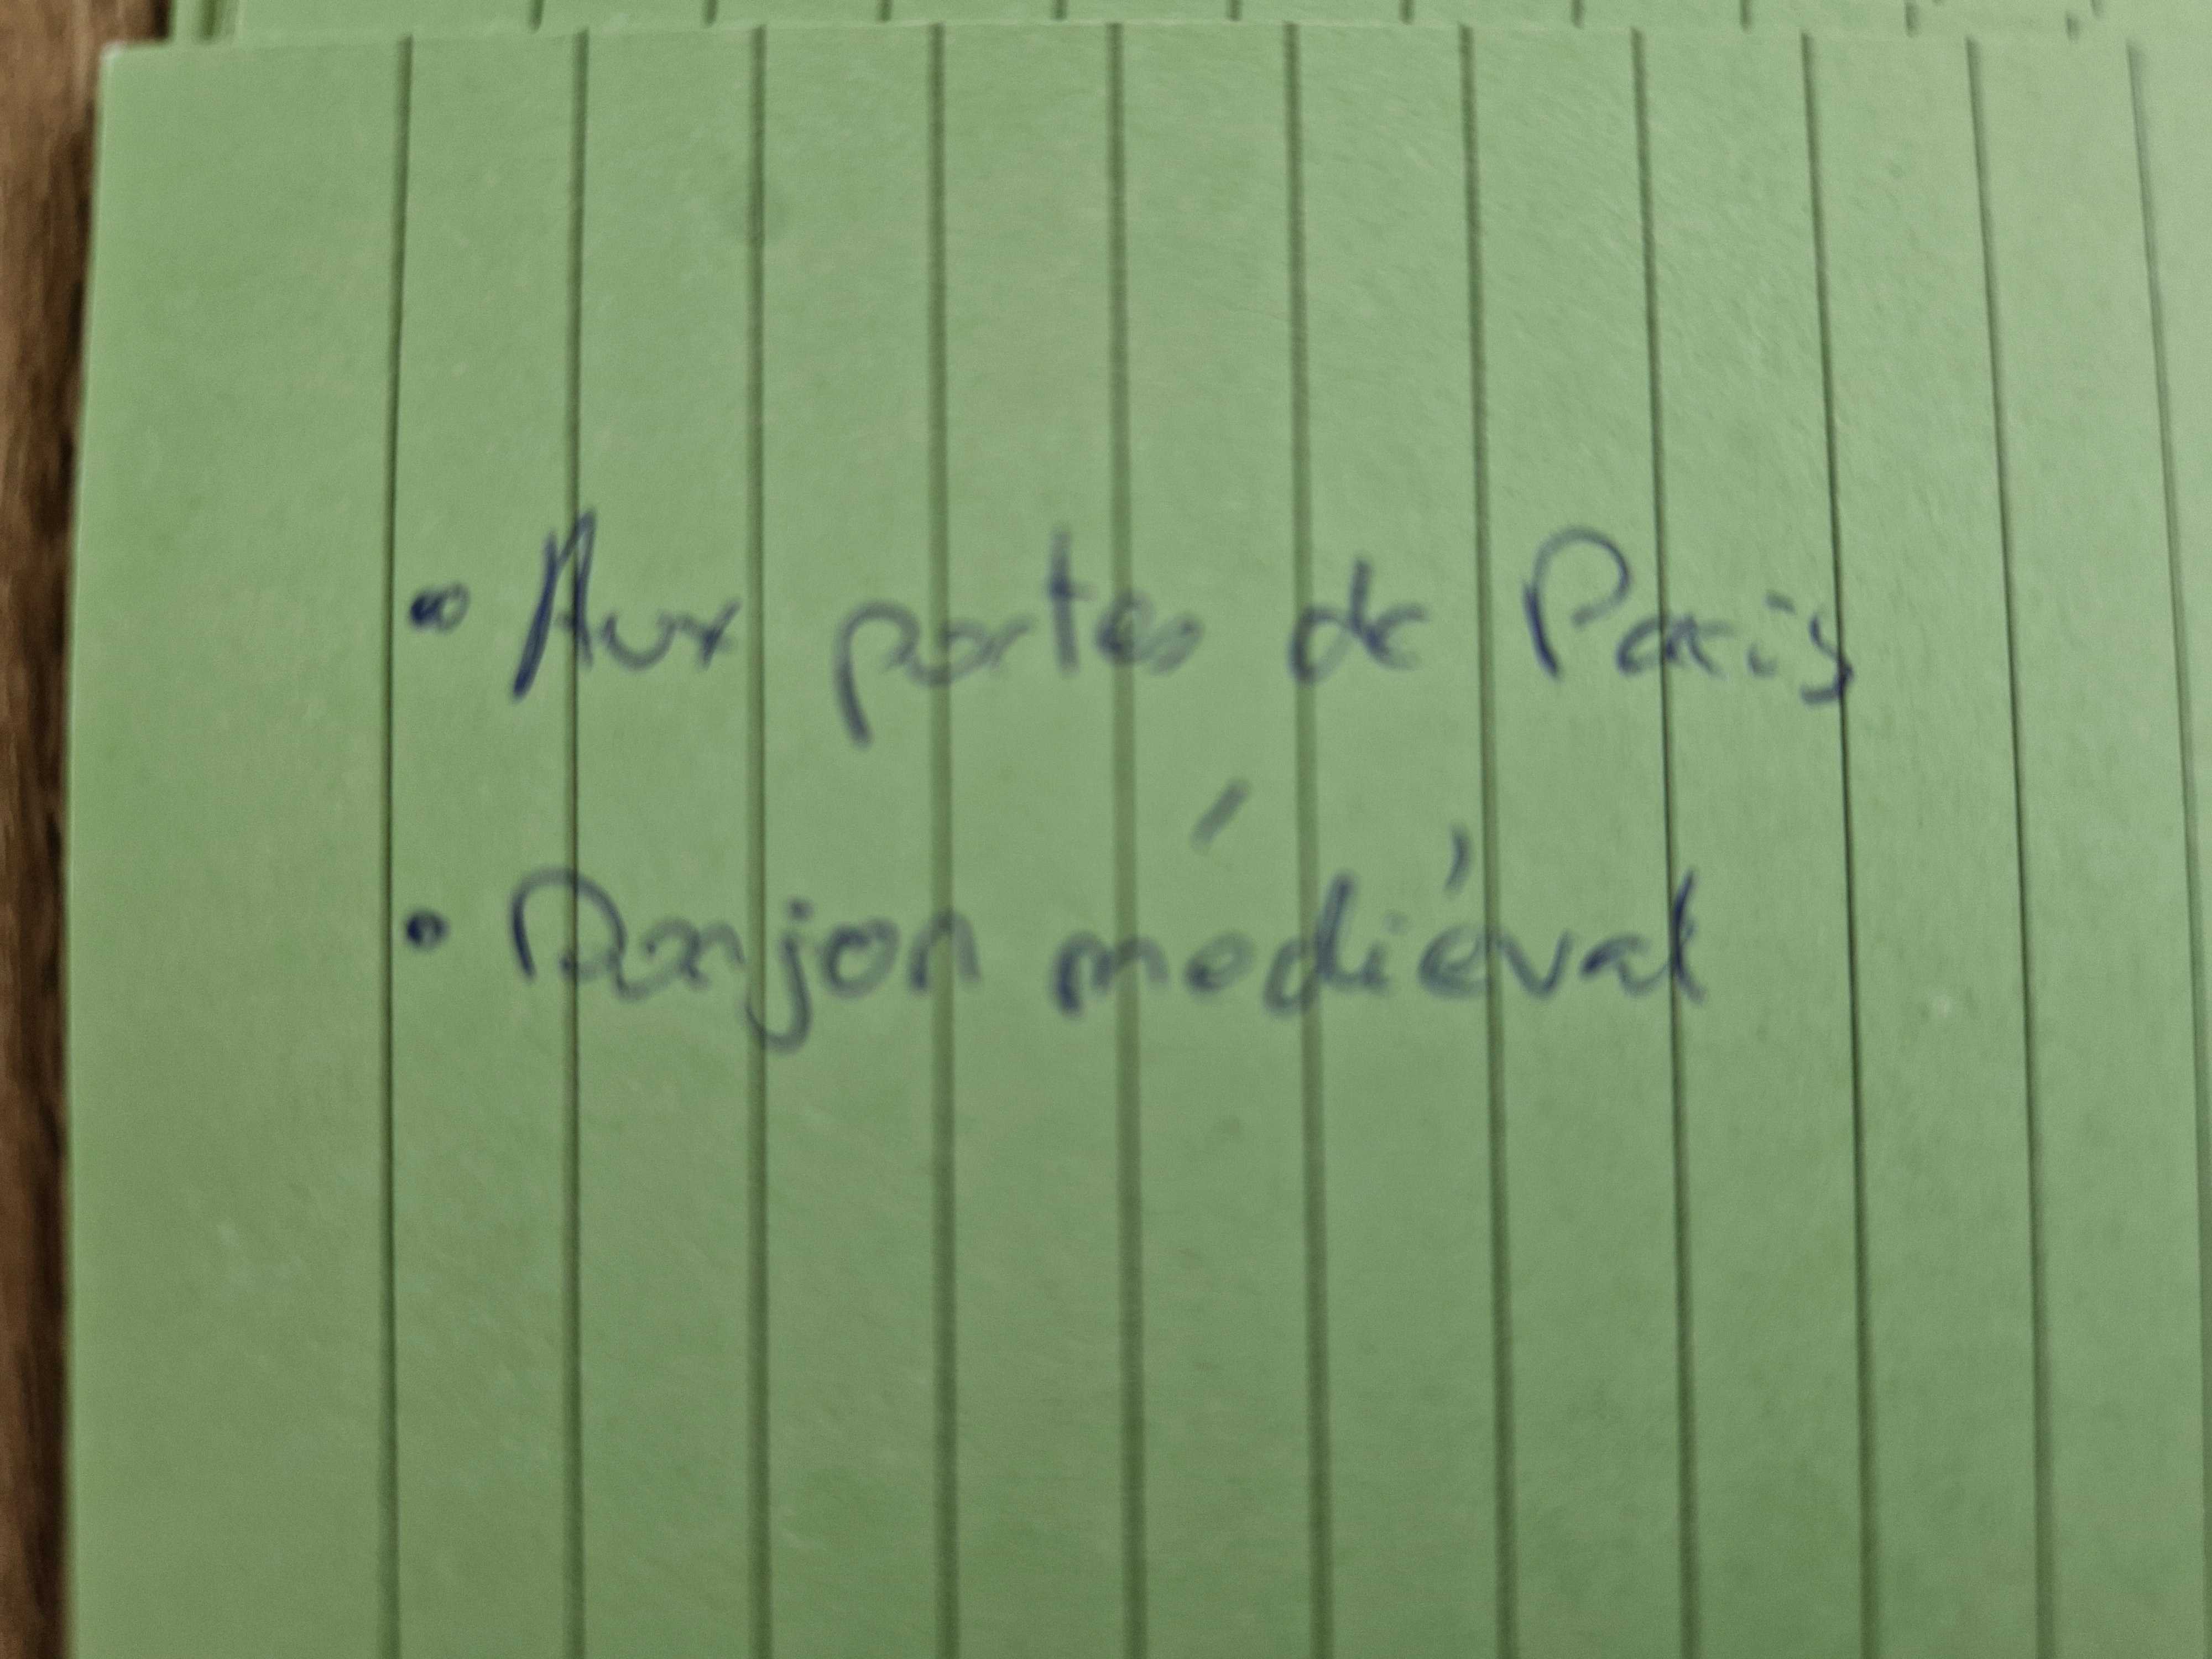 • Aux portes de Paris
• Donjon médiéval